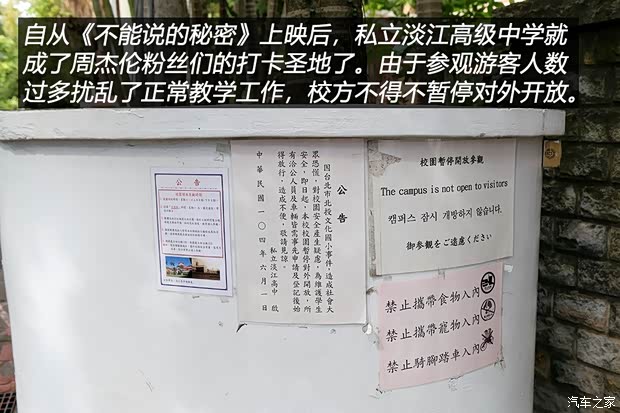 自从《不能说的秘密》上映后，私立淡江高级中学就
成了周杰伦粉丝们的打卡圣地了。由于参观游客人数
过多扰乱了正常教学工作，校方不得不暂停对外开放。
公 告
公 告
因台北市北投文化國小事件，造成社會大
眾恐慌，對校園安全產生疑慮，為維護學生
安全，即日起，本校校園暫停對外開放，所
有洽公人員及車輛皆需事先申請及登記後始
得放行，造成不便，敬請見諒。
私立淡江高中 啟
中華民國一〇四年六月一日
校園暫停開放參觀
The campus is not open to visitors
캠퍼스 잠시 개방하지 않습니다.
御參観をご遠慮ください
禁止攜帶食物入內
禁止攜帶寵物入內
禁止騎腳踏車入內
汽车之家